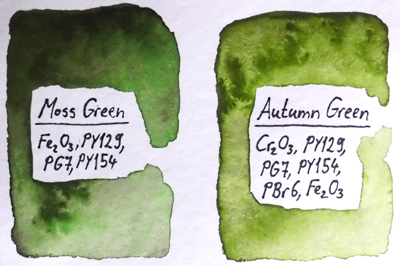 Moss Green
Fe₂O₃, PY129,
PG7, PY154
Autumn Green
Cr₂O₃, PY129,
PG7, PY154,
PBr6, Fe₂O₃